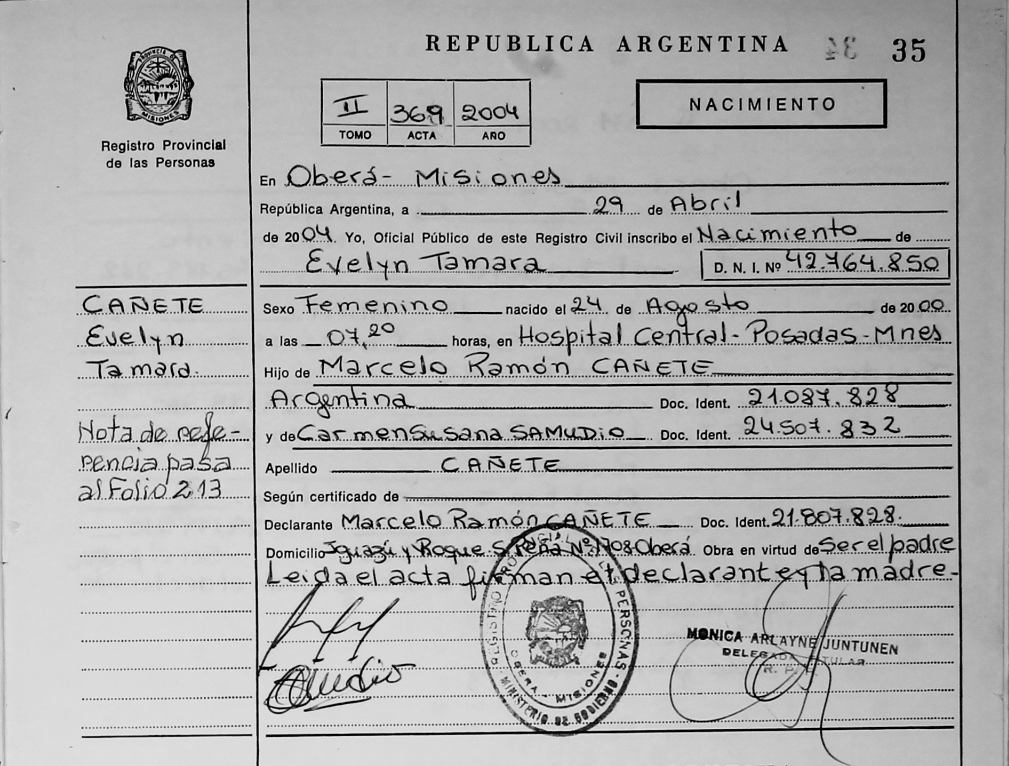 REPUBLICA ARGENTINA 34 35
PROVINCIA DE MISIONES
Registro Provincial
de las Personas
II 369 2004
TOMO ACTA AÑO
NACIMIENTO
En Oberá - Misiones
República Argentina, a 29 de Abril
de 2004. Yo, Oficial Público de este Registro Civil inscribo el Nacimiento de
Evelyn Tamara D. N. I. Nº 42.764.850
CAÑETE
Evelyn
Tamara.
Nota de refe-
rencia pasa
al Folio 213
Sexo Femenino nacido el 24 de Agosto de 2000
a las 07,20 horas, en Hospital Central - Posadas - Mnes
Hijo de Marcelo Ramón CAÑETE
Argentina Doc. Ident. 21.087.828
y de Carmen Susana SAMUDIO Doc. Ident. 24.507.832
Apellido CAÑETE
Según certificado de
Declarante Marcelo Ramón CAÑETE Doc. Ident. 21.807.828.
Domicilio Iguazú y Roque S. Peña Nº 1708 Oberá Obra en virtud de Ser el padre
Leida el acta firman el declarante y la madre.-
REGISTRO PROVINCIAL DE LAS PERSONAS
OBERA - MISIONES
MINISTERIO DE GOBIERNO
MONICA ARLAYNE JUNTUNEN
DELEGADA TITULAR
R. P. P.